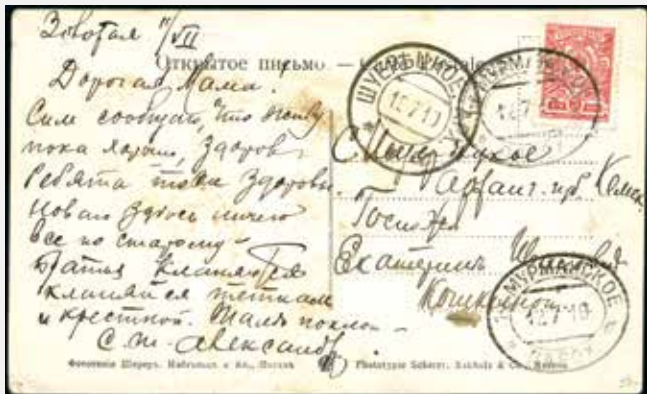 Золотая 11/VII
Открытое письмо — Carte Postale
Дорогая Мама!
Сим сообщаю, что живу
пока хорошо, здоров
Ребята тоже здоровы.
Нового здесь ничего
все по старому
кланяются
кланяйся теткам
и крестной. поклон
С.т. Александр
ШУЕРѢЦКОЕ
МУРМАНСКОЕ
12.7
С. Шуерѣцкое
Арханг. губ. Кемск.
Госпоже
Екатеринѣ
МУРМАНСКОЕ
12 7 10
Фототипія Шереръ, Набгольцъ и Ко., Москва
Phototypie Scherer, Nabholz & Co., Moscou